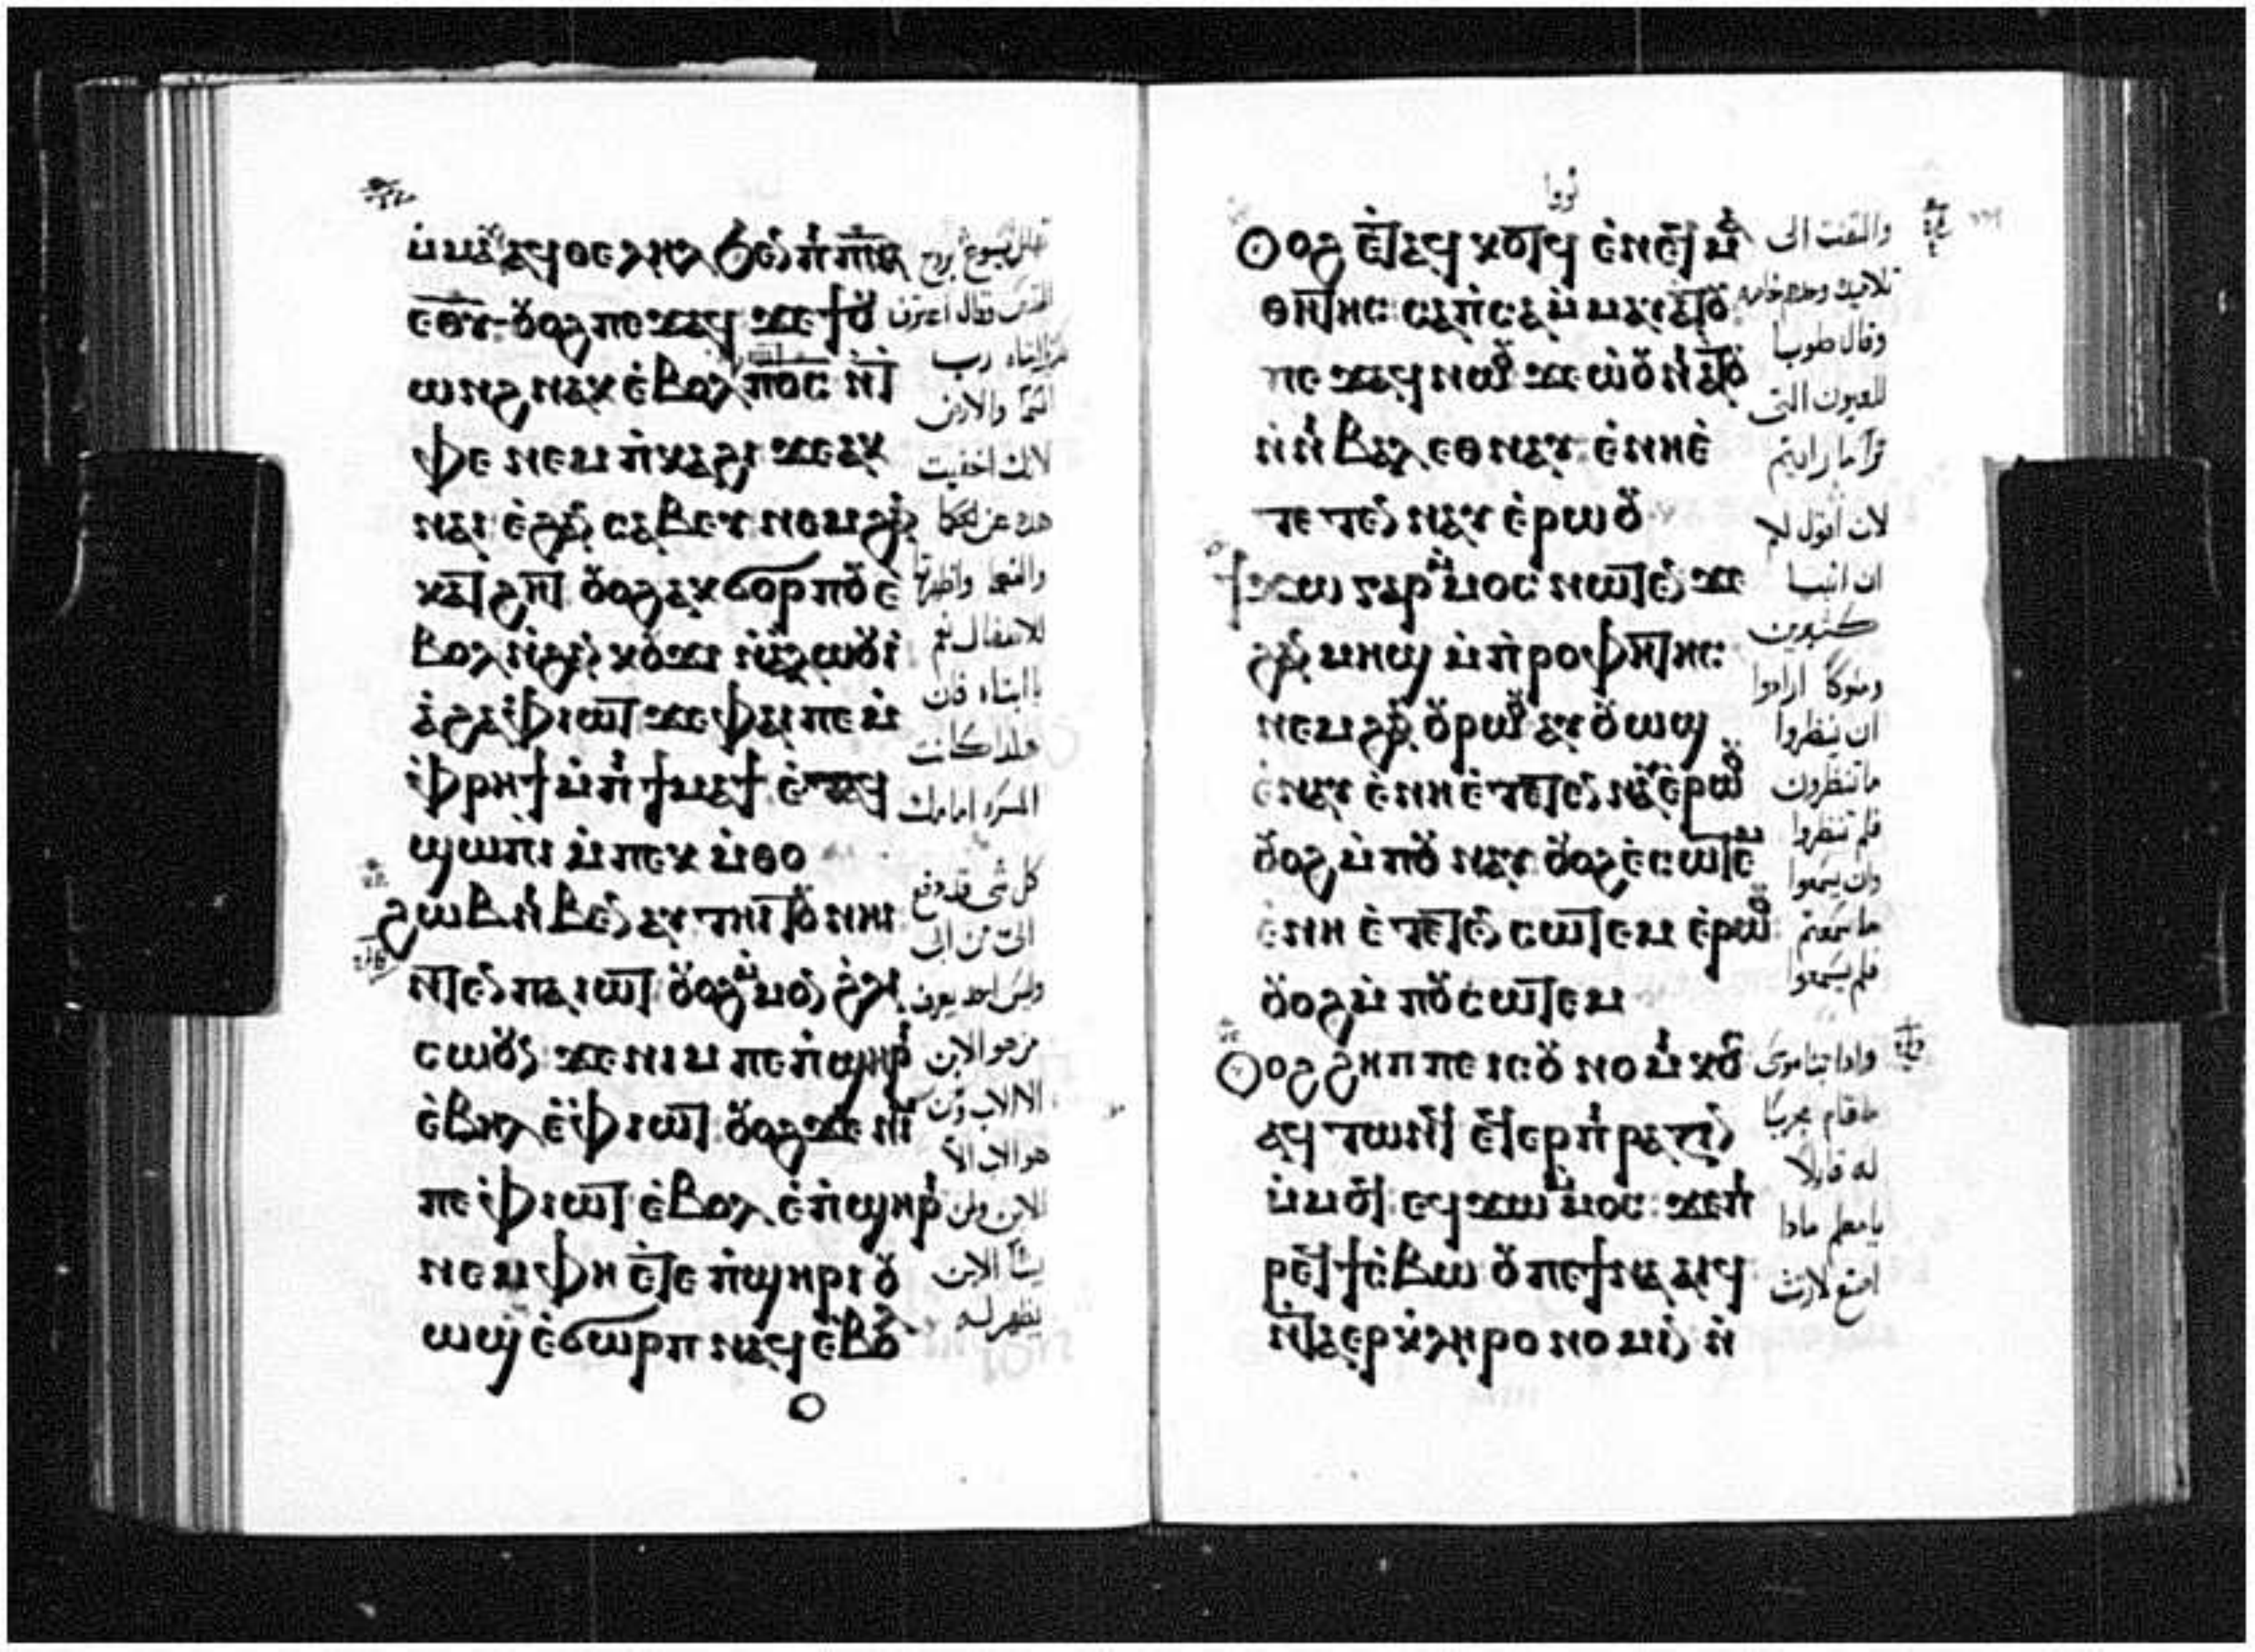 ⲙ̀ⲙⲁⲩ ⲁϥⲑⲉⲗⲏⲗ ϧⲉⲛ ⲡⲓⲡⲛⲁ
ⲉⲑⲩ ⲟⲩⲟϩ ⲡⲉϫⲁϥ ϫⲉ ϯⲟⲩ
ⲱⲛϩ ⲛⲁⲕ ⲉ̀ⲃⲟⲗ ⲡⲟⲥ ⲛ̀ⲧ
ⲫⲉ ⲛⲉⲙ ⲡ̀ⲕⲁϩⲓ ϫⲉ ⲁⲕ
ⲛⲁⲓ ⲉ̀ϩⲁⲛ ⲥⲁⲃⲉⲩ ⲛⲉⲙ ϩⲁⲛ
ⲕⲁⲧϩⲏⲧ ⲟⲩⲟϩ ⲁⲕϭⲟⲣⲡⲟⲩ ⲉ̀
ⲃⲟⲗ ⲛ̀ϩⲁⲛ ⲕⲟⲩϫⲓ ⲛ̀ⲁⲗⲱⲟⲩⲓ̀
ⲁ̀ϩⲁ ⲫ̀ⲓⲱⲧ ϫⲉ ⲫⲁⲓ ⲡⲉ ⲙ̀
ⲫ̀ⲣⲏϯ ⲙ̀ⲡ̀ϯⲙⲁϯ ⲉ̀ⲧⲁϥ
ϣⲱⲡⲓ ⲙ̀ⲡⲉⲕ ⲙ̀ⲑⲟ
ϩⲱⲃ ⲛ̀ⲃⲉⲛ ⲁⲩⲧⲏⲓⲧⲟⲩ ⲛⲏⲓ
ⲛ̀ⲧⲉⲛ ⲡⲁⲓⲱⲧ ⲟⲩⲟϩ ⲙ̀ⲙⲟⲛ ϩ̀ⲗⲓ
ⲥⲱⲟⲩⲛ ϫⲉ ⲛⲓⲙ ⲡⲉ ⲡ̀ϣⲏⲣⲓ
ⲉ̀ⲃⲏⲗ ⲉ̀ⲫ̀ⲓⲱⲧ ⲟⲩⲟϩ ϫⲉ ⲛⲓⲙ
ⲡⲉ ⲫ̀ⲓⲱⲧ ⲉ̀ⲃⲟⲗ ⲉ̀ⲡ̀ϣⲏⲣⲓ
ⲛⲉⲙ ⲫⲏ ⲉ̀ⲧⲉ ⲡ̀ϣⲏⲣⲓ ⲟⲩ
ⲱϣ ⲉ̀ϭⲱⲣⲡ ⲛⲁϥ ⲉ̀ⲃⲟⲗ
تهلل يسوع بروح
القدس وقال اعترف
رب
السما والارض
لانك اخفيت
هذه عن الحكما
والفهما واظهرتها
للاطفال نعم
يا ابتاه فان
هكذا كانت
المسره امامك
كل شى قد دفع
الى من ابى
وليس احد يعرف
من هو الابن
الا الاب ومن
هو الاب الا
الابن ومن
يشا الابن
يظهر له
ⲟⲩⲟϩ ⲉ̀ⲧⲁϥⲕⲟⲧϥ ⲉ̀ⲛⲉϥⲙⲁ
ⲑⲏⲧⲏⲥ ⲥⲁⲡ̀ⲥⲁ ⲙ̀ⲙⲁⲩⲁⲧⲟⲩ
ⲡⲉϫⲁϥ ⲛⲱⲟⲩ ϫⲉ ⲱ̀ⲟⲩⲛ̀ⲓⲁⲧⲟⲩ
ⲛ̀ⲛⲓⲃⲁⲗ ⲉⲑⲛⲁⲩ ⲉ̀ⲛⲏⲉ̀
ⲧⲉⲧⲉⲛ ⲛⲁⲩ ⲉ̀ⲣⲱⲟⲩ
ϯϫⲱ ⲅⲁⲣ ⲙ̀ⲙⲟⲥ ⲛⲱⲧⲉⲛ ϫⲉ
ϩⲁⲛ ⲙⲏϣ ⲙ̀ⲡ̀ⲣⲟⲫⲏⲧⲏⲥ
ⲛⲉⲙ ϩⲁⲛ ⲟⲩⲣⲱⲟⲩ ⲁⲩⲟⲩⲱϣ
ⲉ̀ⲛⲁⲩ ⲉ̀ⲛⲏ ⲉ̀ⲧⲉⲧⲉⲛ ⲛⲁⲩ ⲉ̀ⲣⲱⲟⲩ
ⲟⲩⲟϩ ⲙ̀ⲡⲟⲩ ⲛⲁⲩ ⲟⲩⲟϩ ⲉ̀ⲥⲱⲧⲉⲙ
ⲉ̀ⲛⲏ ⲉ̀ⲧⲉⲧⲉⲛ ⲥⲱⲧⲉⲙ ⲉ̀ⲣⲱⲟⲩ
ⲟⲩⲟϩ ⲙ̀ⲡⲟⲩⲥⲱⲧⲉⲙ
ⲟⲩⲟϩ ϩⲏⲡⲡⲉ ⲓⲥ ⲟⲩ ⲛⲟⲙⲓⲕⲟⲥ
ⲁϥⲧⲱⲛϥ ⲉϥⲉⲣⲡⲓⲣⲁⲍⲓⲛ
ⲙ̀ⲙⲟϥ ⲉϥϫⲱ ⲙ̀ⲙⲟⲥ ϫⲉ ⲡ̀
ⲣⲉϥϯⲥ̀ⲃⲱ ⲟⲩ ⲡⲉϯⲛⲁⲁⲓϥ
ⲛ̀ⲧⲁⲉⲣⲕ̀ⲗⲏⲣⲟⲛⲟⲙⲓⲛ ⲛ̀
والتفت الى
تلاميذه وحدهم خاصه
وقال طوبا
للعيون التى
ترا ما رايتم
لان اقول لكم
ان انبيا
كثيرين
وملوكا ارادوا
ان ينظروا
ما تنظرون
فلم ينظروا
وان يسمعوا
ما سمعتم
فلم يسمعوا
واذا
قام مجربا
له قايلا
يا معلم ماذا
اصنع لارث